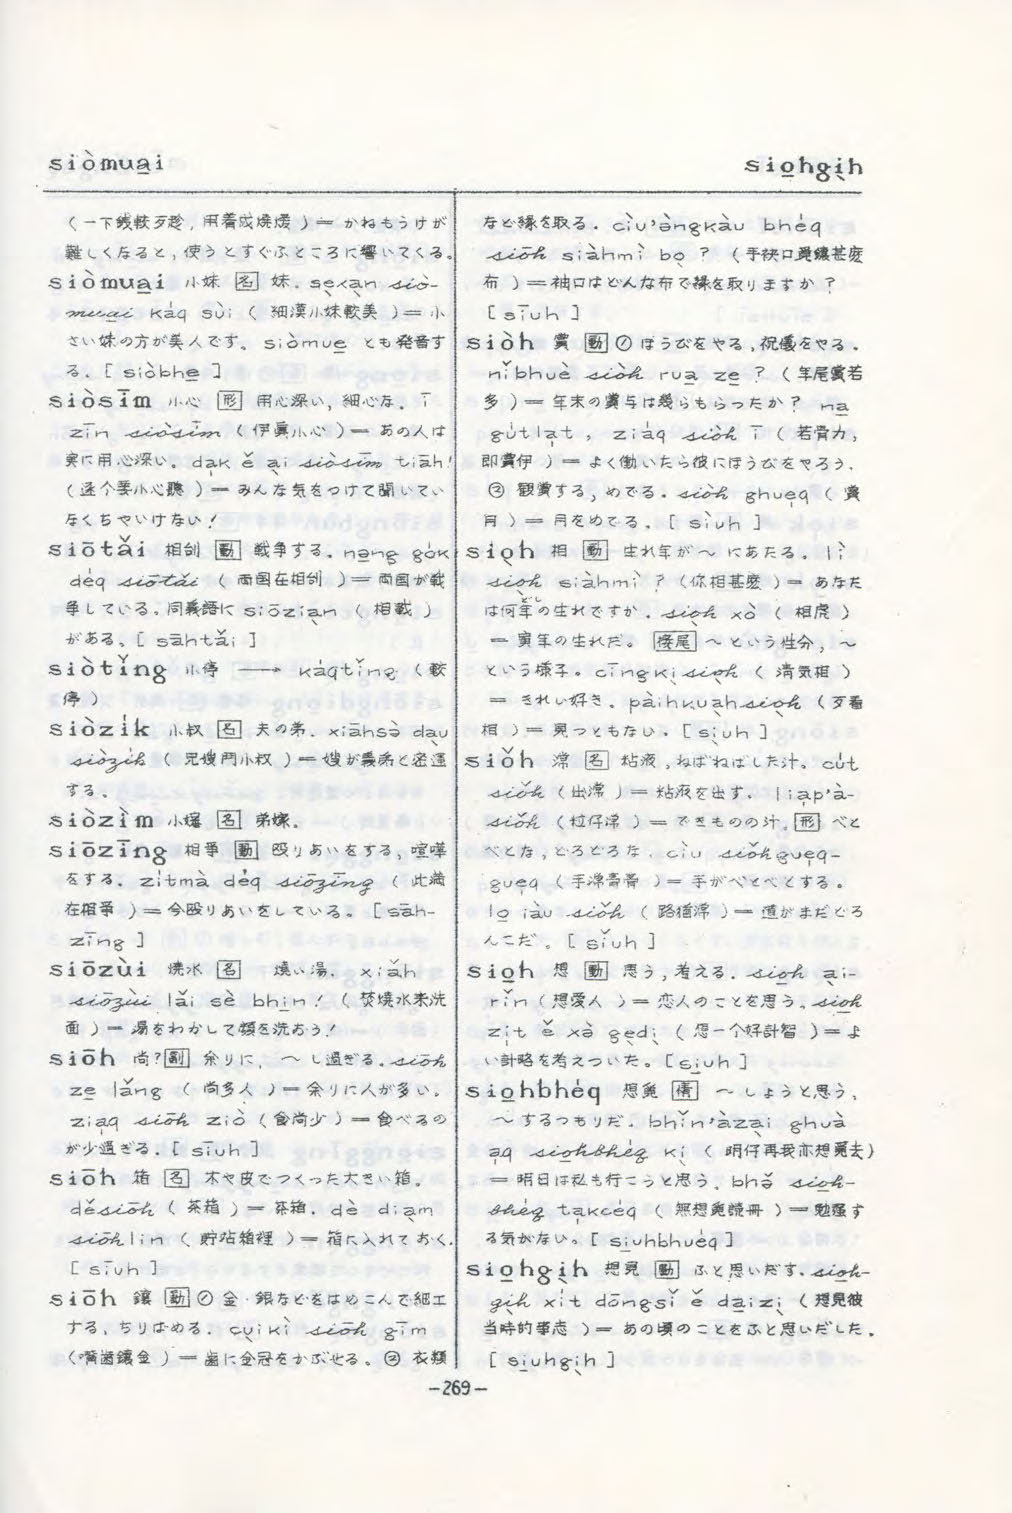 siòmua̱i
sio̱hgi̖h
(一下銭較歹趁,用着成燒燙)＝かねもうけが
難しくなると,使うとすぐふところに響いてくる。
siòmua̱i 小妹 [名] 妹. se̖xa̖n siò-
mua̱i káq sùi ( 細漢小妹較美 )＝小
さい妹の方が美人です。 siòmue̱ とも発音す
る. [ siòbhe̱ ]
siòsīm 小心 [形] 用心深い, 細心な. ī
zīn siòsīm ( 伊真小心 )＝あの人は
実に用心深い。 da̖k ě a̖i siòsīm tiāh!
(逐个要小心聽 )＝みんな気をつけて聞いてい
なくちゃいけない!
siōtǎi 相刣 [動] 戦争する. nə̱ng gók
déq siōtǎi ( 両国在相刣 )＝両国が戦
争している。同義語に siōzia̖n ( 相戦 )
がある。[ sāhtǎi ]
siòtǐng 小停 ⟶ káqtǐng (較
停 )
siòzík 小叔 [名] 夫の弟. xiāhsə̀ da̖u
siòzík ( 兄嫂鬥小叔 )＝嫂が義弟と密通
する.
siòzìm 小嬸 [名] 弟嫁.
siōzīng 相爭 [動] 殴りあいをする, 喧嘩
をする. zítmà déq siōzīng ( 此満
在相爭 )＝今殴りあいをしている。 [sāh-
zīng ]
siōzùi 燒水 [名] 燒い湯. xiǎh
siōzùi lǎi sè bhi̱n! ( 焚燒水来洗
面 )＝湯をわかして顔を洗おう!
siōh 尚? [副] 余りに, 〜し過ぎる. siōh
ze̱ lǎng ( 尚多人 )＝余りに人が多い。
zia̖q siōh ziò (食尚少 )＝食べるの
が少過ぎる. [ sīuh ]
siōh 箱 [名] 木や皮でつくった大きい箱。
děsiōh ( 茶箱 )＝茶箱. dè dia̖m
siōh lin ( 貯站箱裡 )＝箱に入れておく.
[ sīuh ]
siōh 鑲 [動] ⊘ 金・銀などをはめこんで細工
する, ちりばめる. cu̖ikì siōh gīm
(嘴歯鑲金 )＝歯に金冠をかぶせる。 ② 衣類
など縁を取る. cìu'ə̀ngkàu bhéq
siōh siàhmì bo̖ ? (手䘼口要鑲甚麼
布 )＝袖口はどんな布で縁を取りますか?
[ sīuh ]
siòh 賞 [動] ⊘ ほうびをやる, 祝儀をやる.
nǐbhuè siòh rua̱ ze̱ ? (年尾賞若
多 )＝年末の賞与は幾らもらったか? na̱
gútla̖t , ziáq siòh ī ( 若骨力,
即賞伊 )＝よく働いたら彼にほうびをやろう.
② 観賞する, めでる. siòh ghue̖q ( 賞
月 )＝月をめでる. [ sìuh ]
sio̖h 相 [動] 生れ年が〜にあたる. lì
sio̖h siàhmì ? (你相甚麼 )＝あなた
は何年の生れですか. sio̖h xò ( 相虎 )
とし
＝寅年の生れだ。 [接尾] 〜という性分, 〜
という様子。 cīngki̖sio̖h ( 清気相 )
＝きれい好き. pàihku̖ahsio̖h (歹看
相 )＝見っともない. [ si̖uh ]
siǒh 潲 [名] 粘液, ねばねばした汁. cút
siǒh (出潲 )＝粘液を出す. lia̖p'à-
siǒh (粒仔潲 )＝できものの汁. [形] べと
べとな, どろどろな. cìu siǒhgue̖q-
gue̖q (手潲膏膏 )＝手がべとべとする.
lo̱ iàu siǒh (路猶潲 )＝道がまだどろ
んこだ。 [ sǐuh ]
sio̱h 想 [動] 思う, 考える. sio̱h a̖i-
rǐn (想愛人 )＝恋人のことを思う. sio̱h
zi̖t ě xə̀ ge̖di̖ ( 想一个好計智 )＝よ
い計略を考えついた。 [si̱uh ]
sio̱hbhéq 想要 [情] 〜しようと思う,
〜するつもりだ. bhǐn'àza̖i ghuà
a̖q sio̱hbhéq ki̖ ( 明仔再我亦想要去)
＝明日は私も行こうと思う. bhə̌ sio̱h-
bhéq ta̖kcéq ( 無想要読冊 )＝勉強す
る気がない。 [ si̱uhbhuéq ]
sio̱hgi̖h 想見 [動] ふと思いだす. sio̱h-
gi̖h xít dōngsǐ ě da̱izi̖ (想見彼
当時的事志 )＝あの頃のことをふと思いだした.
[ si̱uhgi̖h ]
−269−